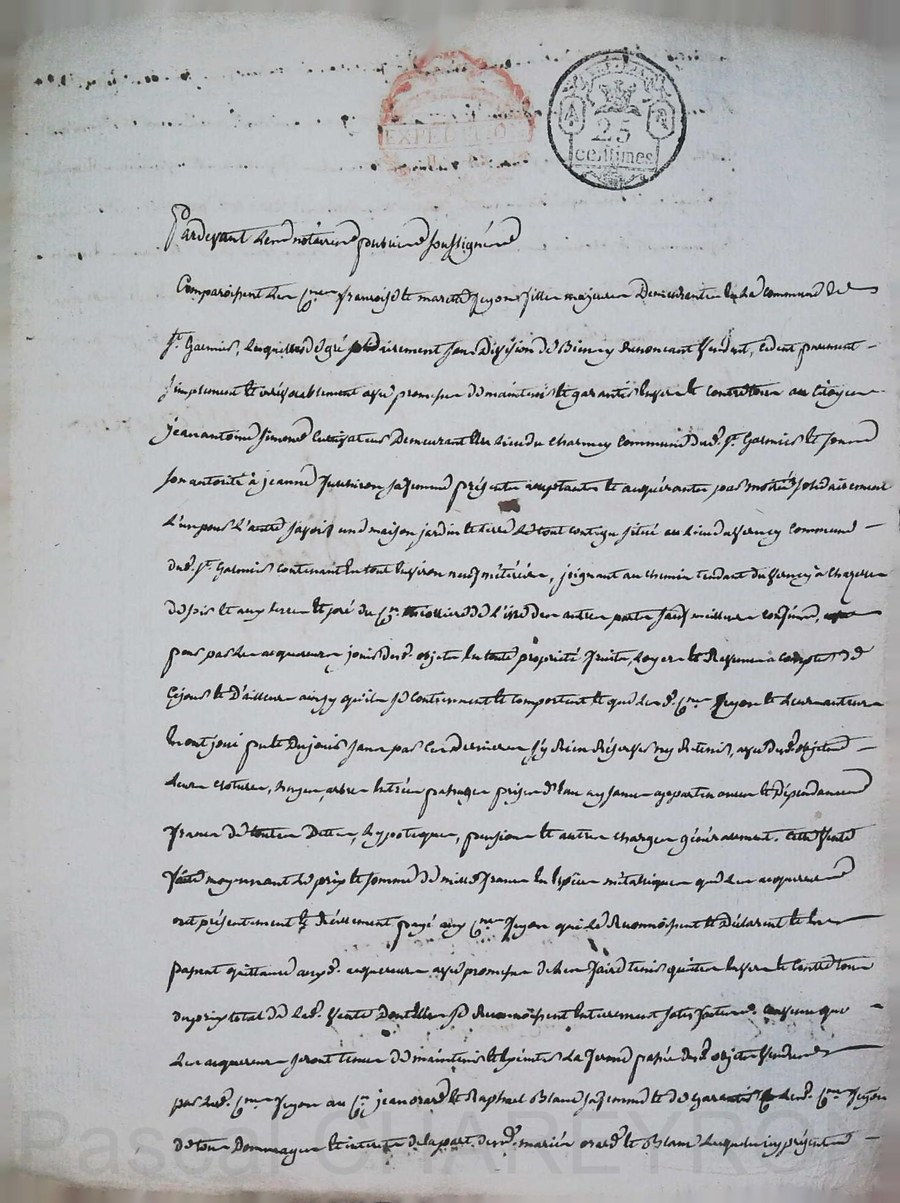 EXPEDITION
25
centimes
Pardevant les notaires publics soussignés
Comparoissent les Cnes françoise et marie Teyon filles majeures Demeurantes en la commune de
St. Galmier, lesquelles de gré solidairement sans Division de Biens y Renonçant Vendent, cèdent purement
simplement et irrévocablement avec promesse de maintenir et garantir envers et contre tous au Citoyen
jean antoine Simond Cultivateur Demeurant au lieu du Charmey Commune dud. St. Galmier et sous
son autorité à jeanne sa femme présents acceptants et acquérants par moitié solidairement
l'un pour l'autre savoir une maison jardin et terre le tout contigu situé au lieu du Verney Commune
dud. St. Galmier contenant en tout environ neuf métérées, joignant au chemin tendant du Verney à Chazelles
de soir et aux terres et pré du Cn. de l'isle des autres parts sauf meilleurs confins,
pour par les acquéreurs jouir desd. objets en toute propriété fruits, loyers et Revenus à compter de
Ce jour et D'ailleurs ainsy qu'ils se contiennent et comportent et que lesd. Cnes Teyon et leurs auteurs
en ont joui pu et Du jouir sans par ces Dernières s'y Rien Réserver ny Retenir, avec desd. objets
leurs clotures, noyers, arbres entrées passages prises d'eau aysances appartenances et Dépendances
francs de toutes Dettes, hypoteques, pensions et autres charges généralement. Cette Vente
faite moyennant le prix et somme de mille francs en Espèces métalliques que les acquéreurs
ont présentement et Réellement payé aux Cnes Teyon qui le Reconnoissent et Déclarent et en
passent quittance auxd. acquéreurs avec promesse de les en faire tenir quittes envers et contre tous
du prix total de lad. Vente Dont elles se Reconnoissent entièrement satisfaites. Convenu que
les acquéreurs seront tenus de maintenir et exécuter la ferme passée desd. objets Vendus
par lesd. Cnes Teyon au Cn. jean orard et Raphael Blanc sa femme et de garantir lesd. Cnes Teyon
de tous Dommages et interets de la part desd. mariés orard et Blanc lesquels icy présents
Pascal CHAREYRON